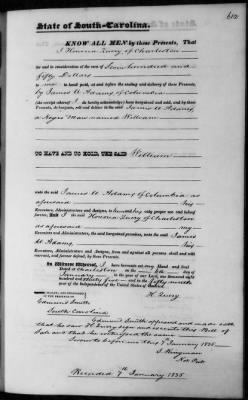 State of South-Carolina.
KNOW ALL MEN by these Presents, That
I Horace Zurry of Charleston
for and in consideration of the sum of Four hundred and
fifty Dollars
to me in hand paid, at and before the sealing and delivery of these Presents,
by James U Adams of Columbia
(the receipt whereof I do hereby acknowledge) have bargained and sold, and by these
Presents, do bargain, sell and deliver to the said James U Adams
a Negro Man named William
TO HAVE AND TO HOLD, THE SAID William
unto the said James U Adams of Columbia as
aforesaid his
Executors, Administrators and Assigns, to his and their only proper use and behoof
forever. And I the said Horace Zurry of Charleston
as aforesaid my
Executors and Administrators, the said bargained premises, unto the said James
U Adams, his
Executors, Administrators and Assigns, from and against all persons shall and will
warrant, and forever defend, by these Presents.
In Witness Whereof, I have hereunto set my Hand and Seal
Dated at Charleston on the day of
January in the year of our Lord, one thousand eight
hundred and thirty and in the fifty ninth
year of the Independence of the United States of America.
H. Zurry
IN THE PRESENCE OF
Edmund Smith
South Carolina
Edmund Smith appeared and made oath
that he saw H Zurry sign and execute this Bill of
Sale and that he witnessed the same
Sworn to before me this 7 January 1835
Not Pub
Recorded 7th January 1835